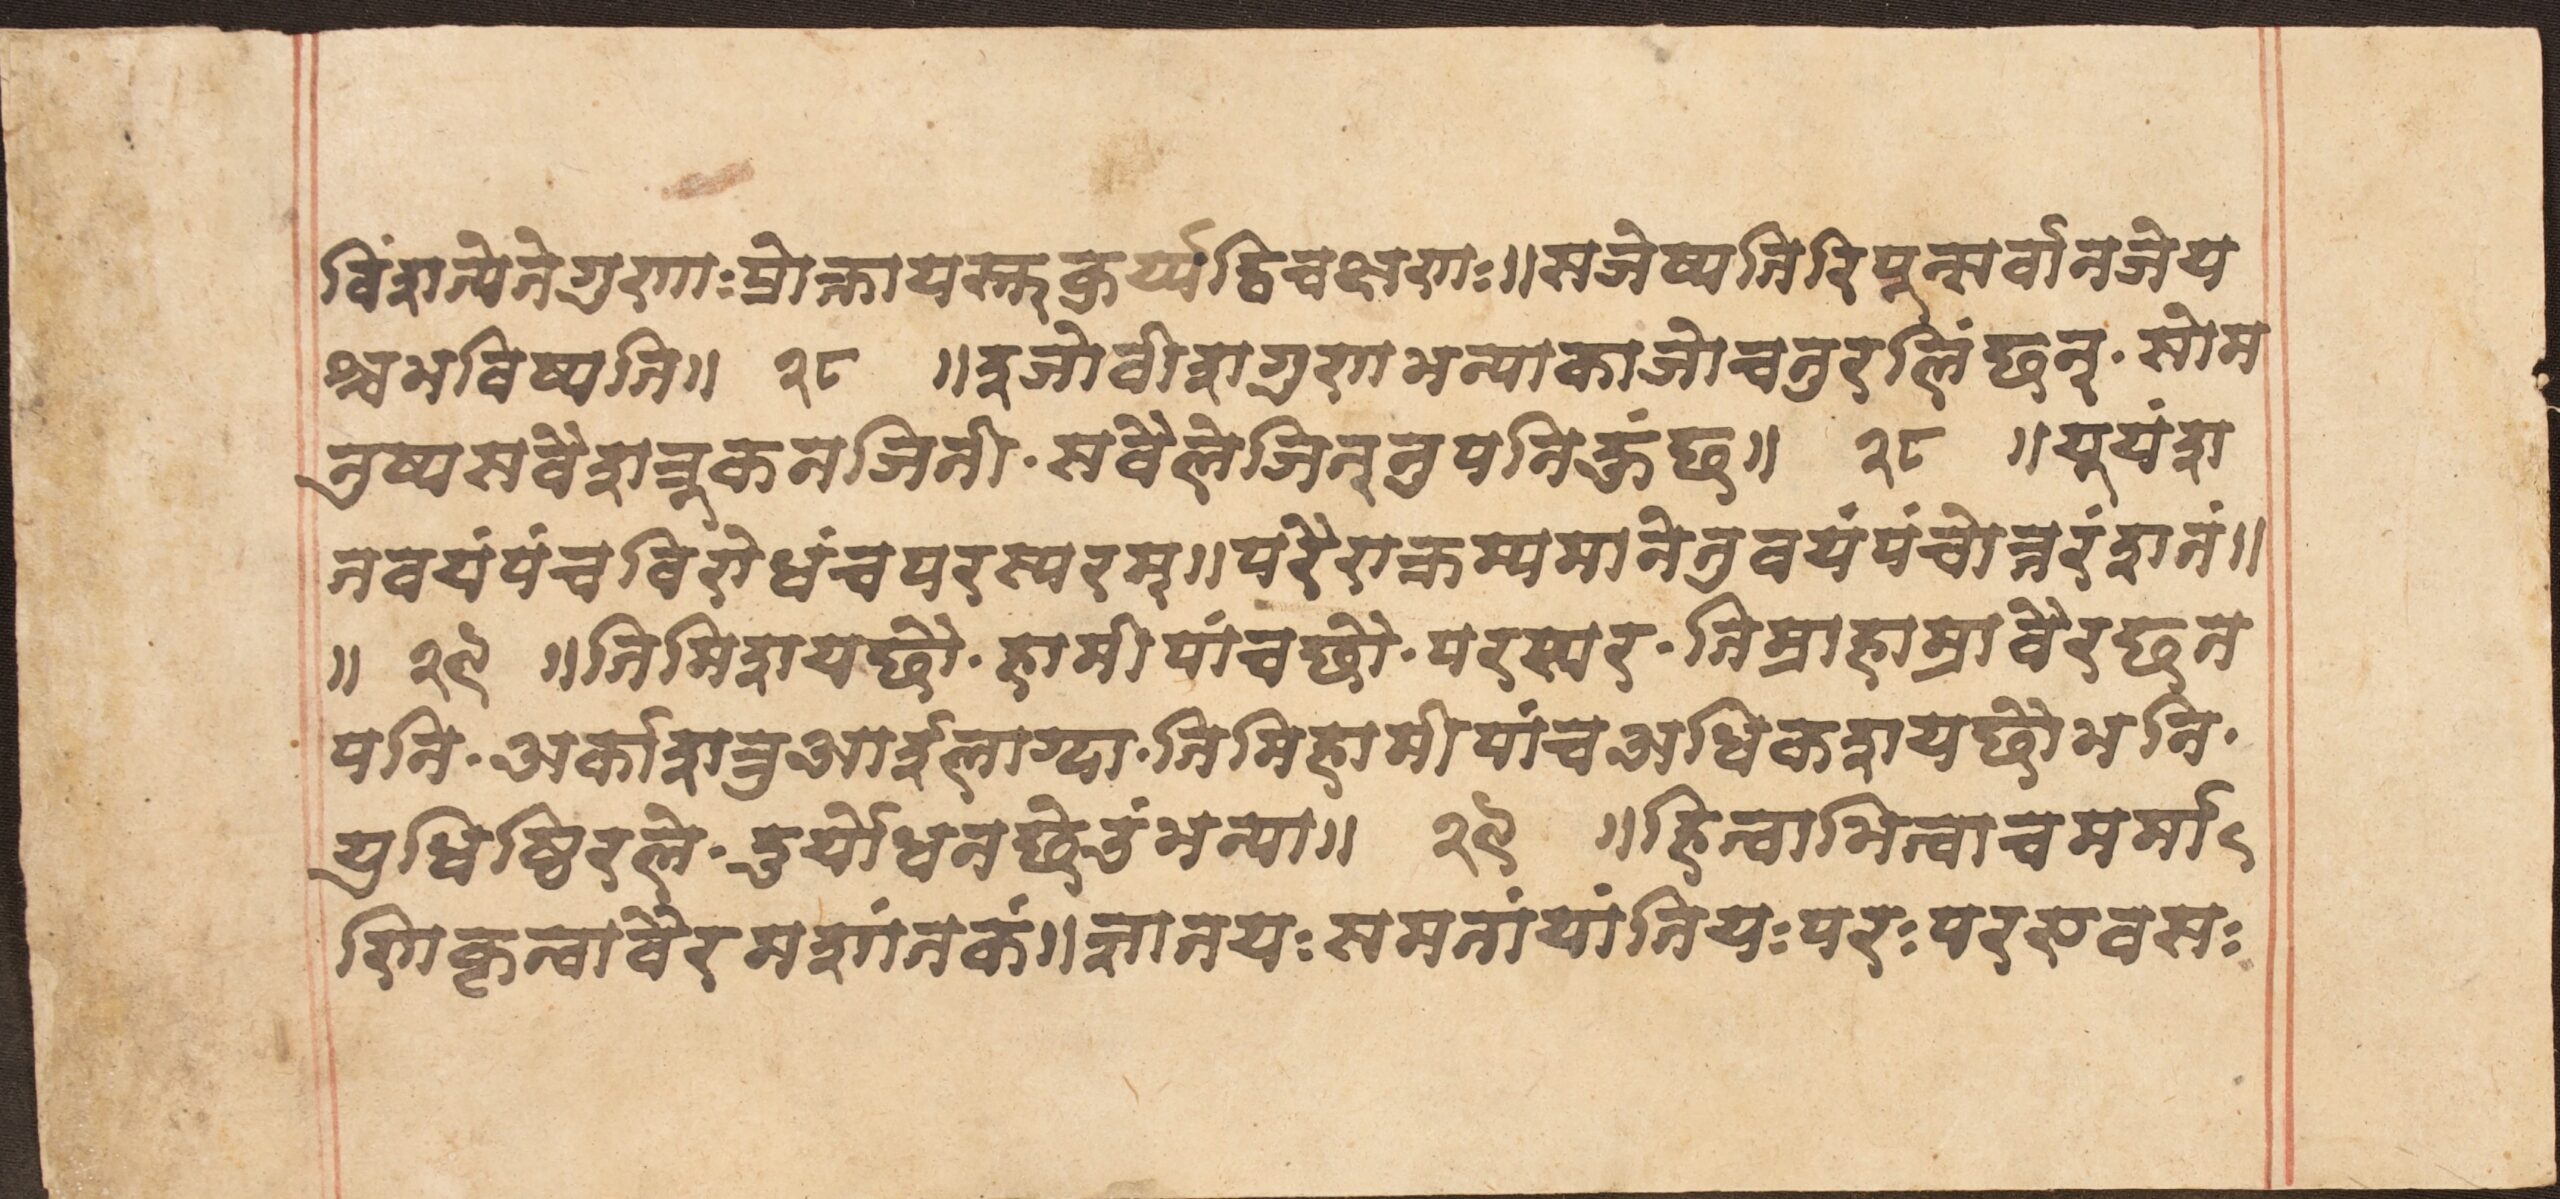 विंशत्येते गुणाः प्रोक्ता यस्तु कुर्य्याद्विचक्षणः॥ स जेष्यति रिपून्सर्वानजेय
श्च भविष्यति॥ २८ ॥ इ जो वीश गुण भन्या का जो चतुरलिं छन्· सो म
नुष्य सवै शत्रुकन जिती· सवैले जिन्नु पनि कुं छ॥ २८ ॥ यूयं श
त वयं पंच विरोधं च परस्परम्॥ परैराक्रम्यमाने तु वयं पंचोत्तरं शतं॥
॥ २९ ॥ तिमि शय छौ· हामी पांच छौ· परस्पर· तिम्रा हाम्रा वैर छन
पनि· अर्का शत्रु आई लाग्दा· तिमि हामी पांच अधिक शय छौ भनि·
युधिष्ठिरले· दुर्योधन छेउं भन्या॥ २९ ॥ हित्वा भित्वा च मर्मा
णि कृत्वा वैरमशांतकं॥ ज्ञातयः समतां यांति यः परः पर एव सः